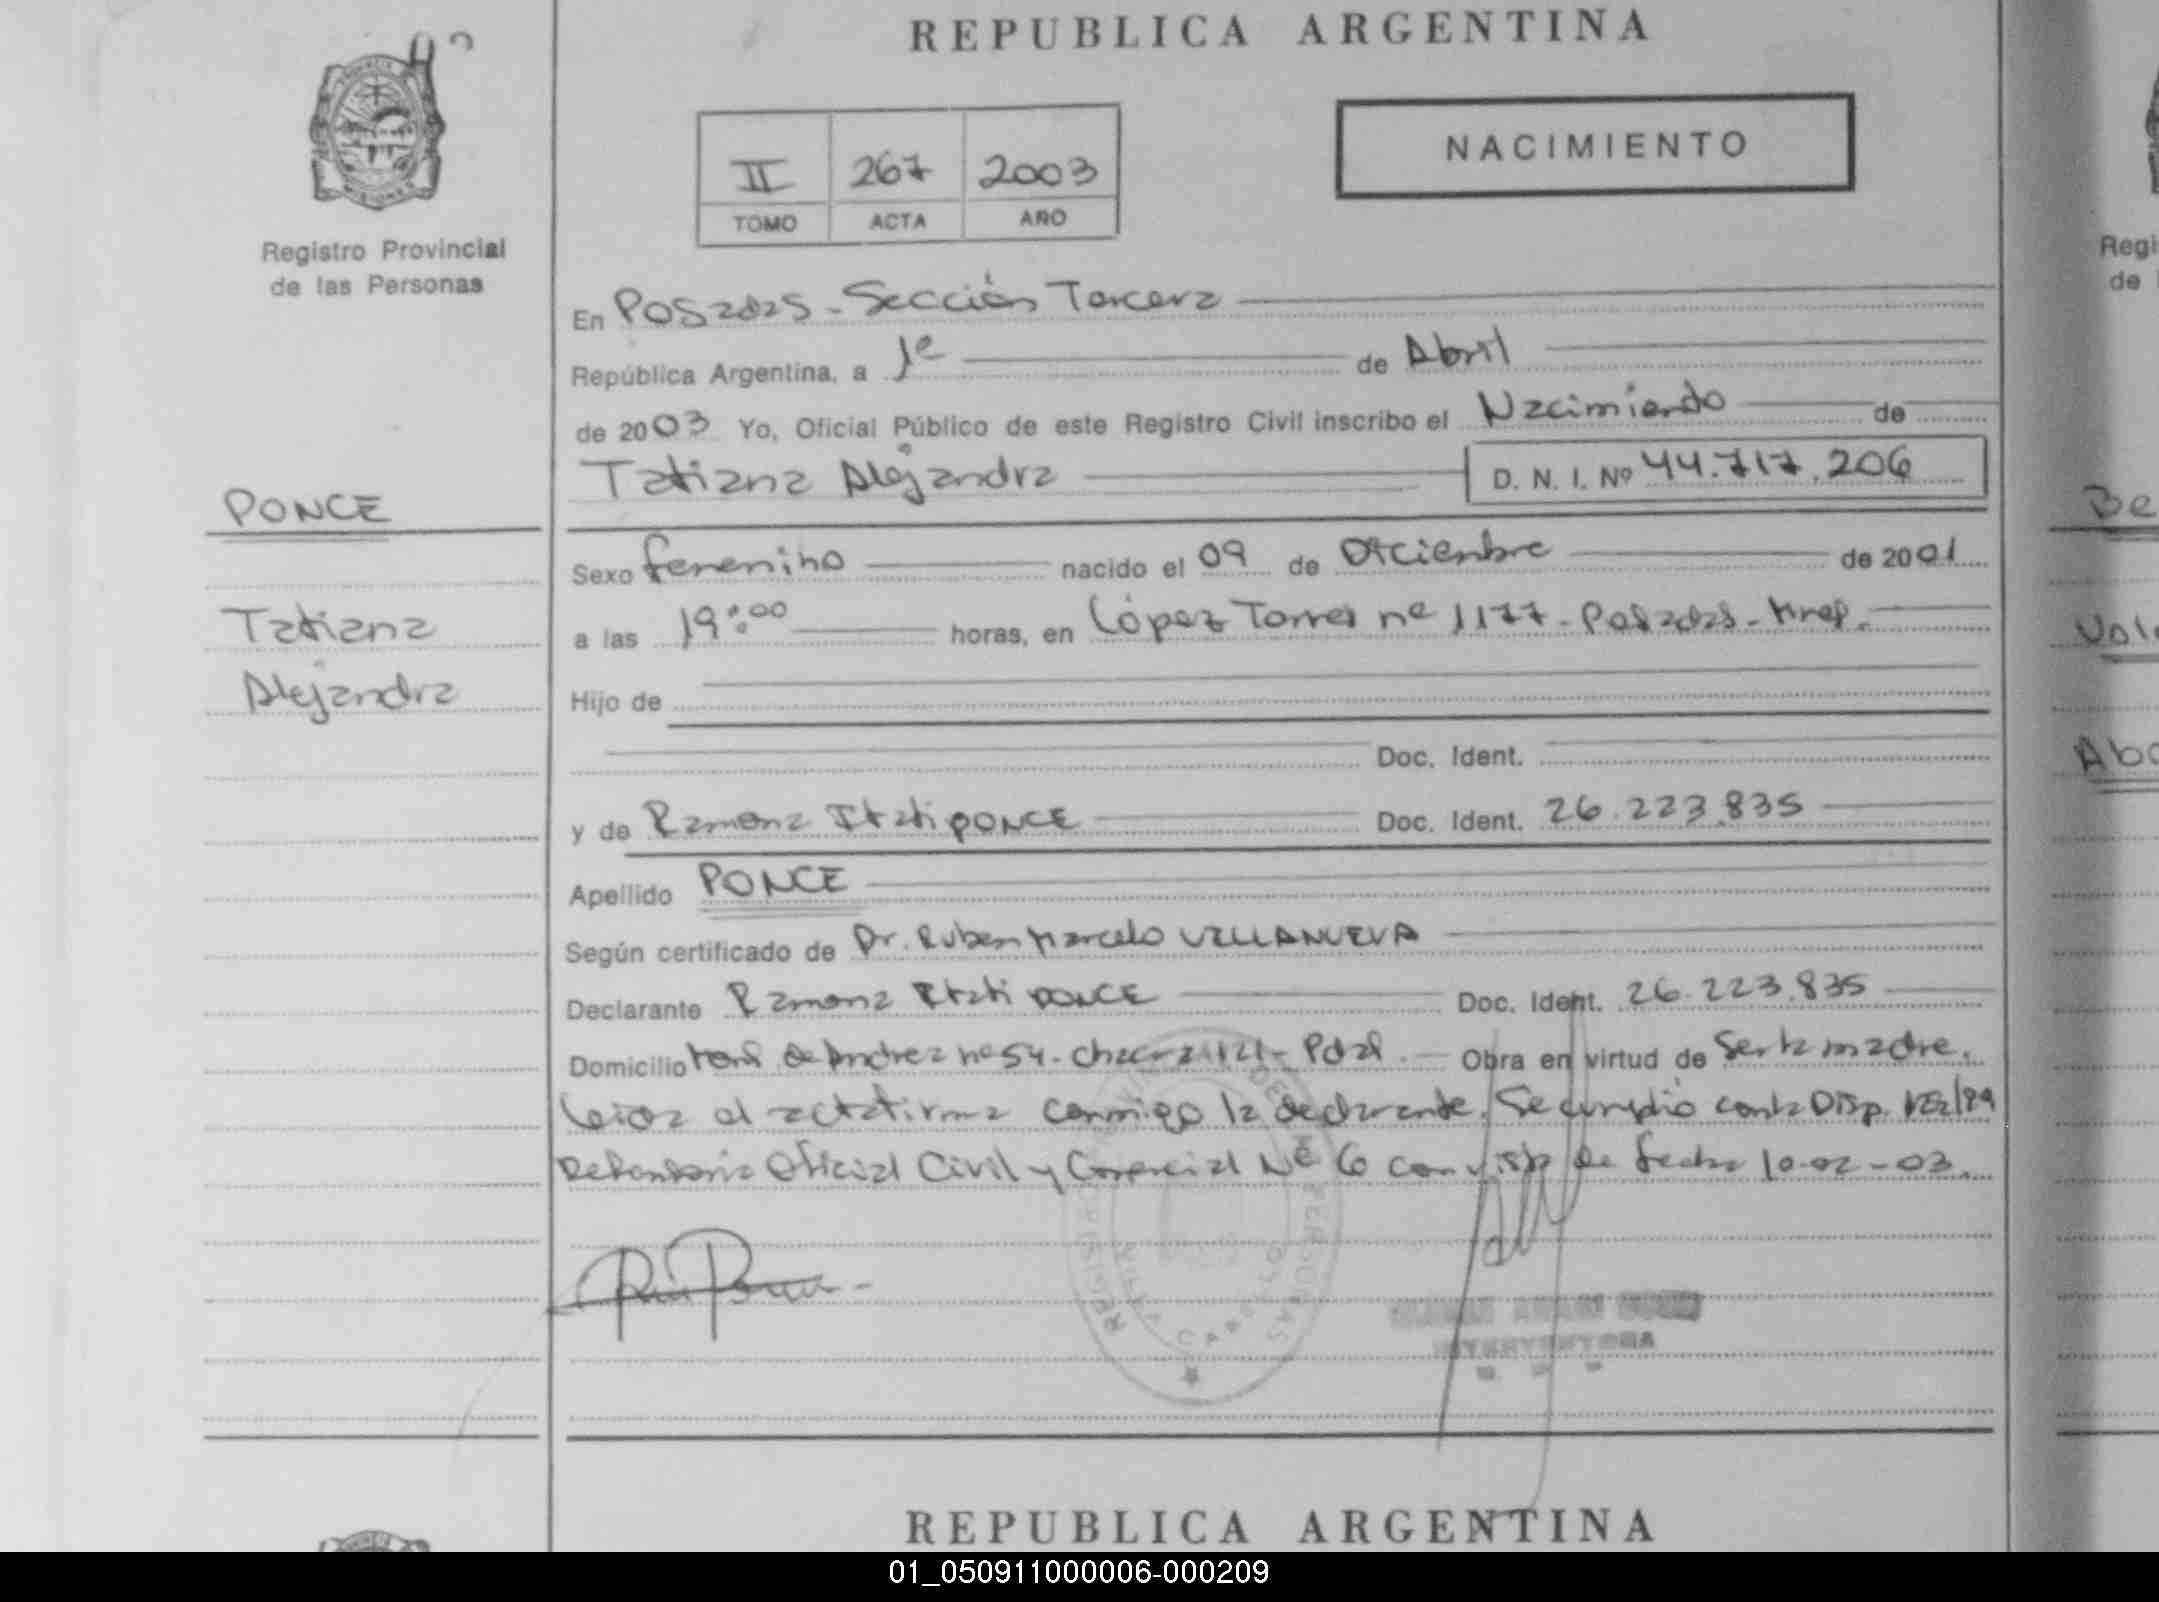 REPUBLICA ARGENTINA
NACIMIENTO
II 267 2003
TOMO ACTA AÑO
Registro Provincial
de las Personas
En Posadas - Sección Tercera
República Argentina, a 1º de Abril
de 2003 Yo, Oficial Público de este Registro Civil inscribo el Nacimiento de
Tatiana Alejandra D. N. I. Nº 44.717.206
PONCE
Tatiana
Alejandra
Sexo femenino nacido el 09 de Diciembre de 2001
a las 19:00 horas, en López Torres nº 1177 - Posadas - Mnes.
Hijo de
Doc. Ident.
y de Ramona Itati PONCE Doc. Ident. 26.223.835
Apellido PONCE
Según certificado de Dr. Ruben Marcelo VILLANUEVA
Declarante Ramona Itati PONCE Doc. Ident. 26.223.835
Domicilio nº 54 - chacra 121 - Pdas. Obra en virtud de Ser la madre.
Leida el acta firma conmigo la declarante. Se cumplió con la Disp.
Defensoria Oficial Civil y Comercial Nº 6 con vista de fecha 10-02-03.
REPUBLICA ARGENTINA
Regi
de
Be
Abo
01_050911000006-000209